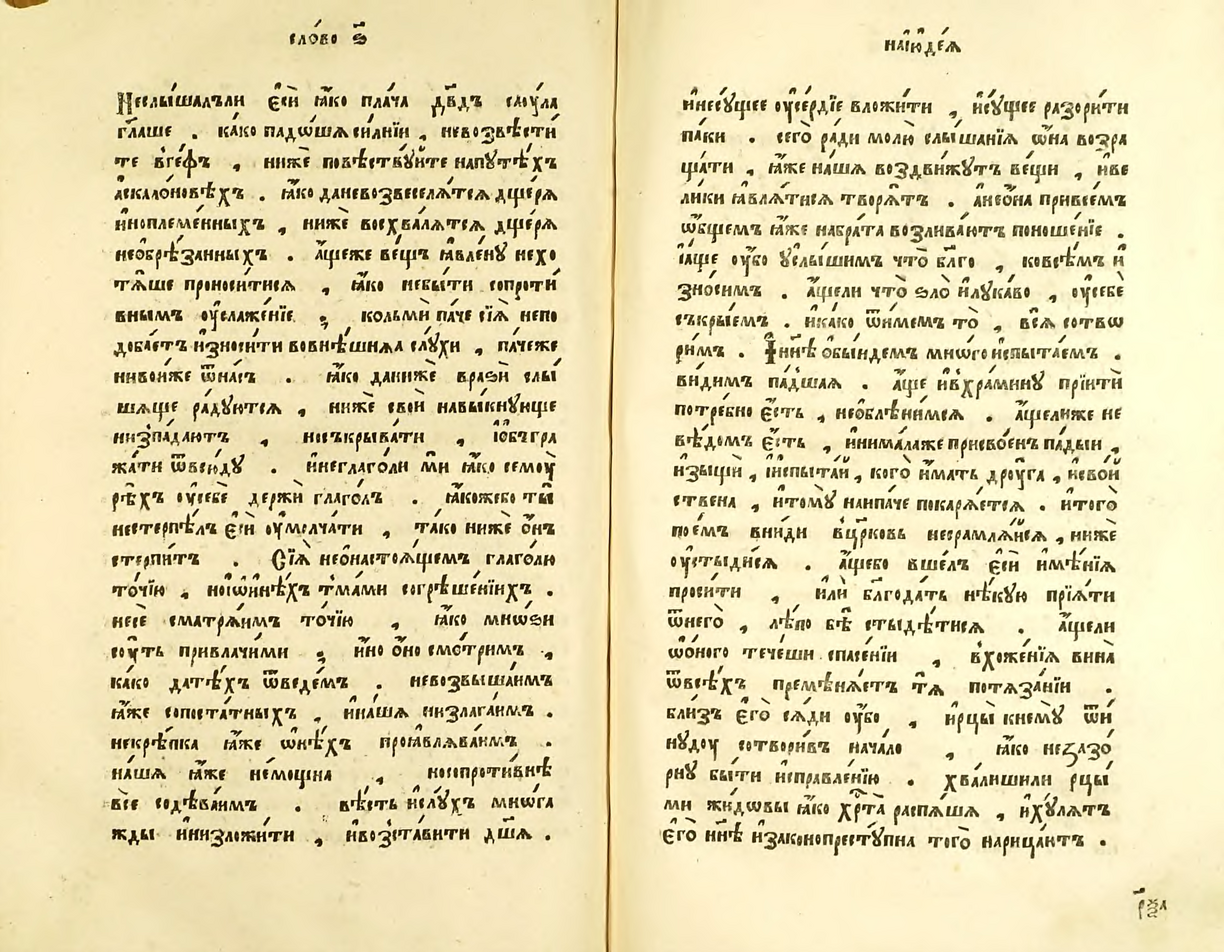 сло́во ѕ҃
Неслышалъли є҆сѝ ꙗ҆́ко пла́ча дв҃дъ саоу́ла
гл҃аше . ка́ко падо́шѧ си́лнїи , невозвѣсти́
те вге́ѳъ , нижѐ повѣ́ствꙋйте напꙋте́хъ
а҆скало́новѣхъ . ꙗ҆́ко даневозвеселѧ́тсѧ дще́рѧ
и҆ноплеме́нныхъ , нижѐ восхвалѧ́тсѧ дще́рѧ
необрѣ́занныхъ . а҆́щеже ве́щъ ꙗ҆вле́нꙋ нехо
тѧ́ше проноси́тисѧ , ꙗ҆́ко небы́ти сопроти́
внымъ ѹ҆слажде́нїе ; кольмѝ па́че сїѧ̀ непо
доба́етъ и҆зноси́ти вовнѣ́шнѧа слꙋ́хи , па́чеже
нивои҆́же ѿна́съ . ꙗ҆́ко данижѐ вразѝ слы́
шѧще ра́дꙋютсѧ , нижѐ своѝ навыкнꙋ́вще
низпа́даютъ , нисъкрыва́ти , и҆ѡбъгра
жа́ти ѿвсю́дꙋ . и҆неглаго́ли мѝ ꙗ҆́ко семоу̀
рѣ́хъ ѹ҆себѐ держѝ глаго́лъ . ꙗ҆́коже бо ты̀
нестерпѣ́лъ є҆сѝ ѹ҆молча́ти , та́ко нижѐ о҆́нъ
стерпи́тъ . Сїѧ̀ неѡнастоѧ́щемъ глаго́лю
то́чїю , ноиѡ҆и҆нѣ́хъ тма́ми согрѣше́нїихъ .
несѐ сматрѧ́имъ то́чїю , ꙗ҆́ко мно́зи
соу́ть привла́чими ; и҆́но о҆́но смо́тримъ ,
ка́ко датѣ́хъ ѿведе́мъ . невозвыша́имъ
ꙗ҆́же сопоста́тныхъ , и҆на́шѧ низлага́имъ .
некрѣ́пка ꙗ҆́же ѡ҆нѣ́хъ проꙗвлѧва́имъ .
на́шѧ ꙗ҆́же не́мощна , носопроти́внѣ
всѐ содѣва́имъ . вѣ́сть и҆слꙋ́хъ мно́га
жды и҆низложи́ти , и҆возста́вити дш҃ѧ .
наі҆юде́ѧ
и҆несꙋ́щее ѹ҆се́рдїе вложи́ти , и҆сꙋ́щее разори́ти
па́ки . сегѡ̀ ра́ди молю̀ слы́шанїѧ ѡ҆на̀ возра
ща́ти , ꙗ҆́же на́шѧ воздви́жꙋтъ ве́щи , и҆ве
ли́ки ꙗ҆влѧ́тисѧ творѧ́тъ . а҆неѡ҆на̀ привсе́мъ
ѡ҆́бщемъ ꙗ҆́же набра́та возлива́ютъ поноше́нїе .
і҆а҆́ще ѹ҆́бо ᲂу҆слы́шимъ что̀ бл҃го , ковсѣ́мъ и҆
зно́симъ . а҆́щели что̀ ѕло̀ и҆лꙋка́во , ѹ҆себѐ
съкры́емъ . и҆ка́ко ѿи́мемъ то̀ , всѧ̀ сотво
ри́мъ . И҆нн҃ѣ ѡ҆бы́идемъ мно́го и҆спыта́емъ .
ви́димъ па́дшаѧ . а҆́ще и҆вхра́минꙋ прїитѝ
потре́бно є҆́сть , необлѣни́мсѧ . а҆́щелиже не
вѣ́домъ є҆́сть , и҆нима́лаже присвое́нъ па́дыи ,
и҆зыщѝ , и҆испыта́й , кого̀ и҆́мать дроу́га , и҆свой́
ствена , и҆томꙋ̀ наипа́че покарѧ́етсѧ . и҆того̀
пое́мъ вни́ди вцр҃ковь несрамлѧ́йсѧ , нижѐ
ѹ҆стыди́сѧ . а҆́щебо вше́лъ є҆сѝ и҆мѣ́нїѧ
проси́ти , и҆лѝ бл҃года́ть нѣ́кꙋю прїѧ́ти
ѿнего̀ , лѣ́по бѣ̀ стыдѣ́тисѧ . а҆́щели
ѡ҆о́ного тече́ши спасе́нїи , вхоже́нїѧ вина̀
ѿвсѣ́хъ премѣнѧ́етъ тѧ̀ потѧза́нїи .
бли́зъ є҆го̀ сѧ́ди ѹ҆́бо , и҆рцы̀ кнемꙋ̀ ѿи
нꙋ́доу сотвори́въ нача́ло , ꙗ҆́ко незазо́
рнꙋ бы́ти и҆справле́нїю . хва́лишили рцы́
ми жидо́вы ꙗ҆́ко хрⷭ҇та̀ распѧ́шѧ , и҆хꙋ́лѧтъ
є҆го̀ нн҃ѣ и҆законопрестꙋ́пна того̀ нарица́ютъ .
рѯ҃а